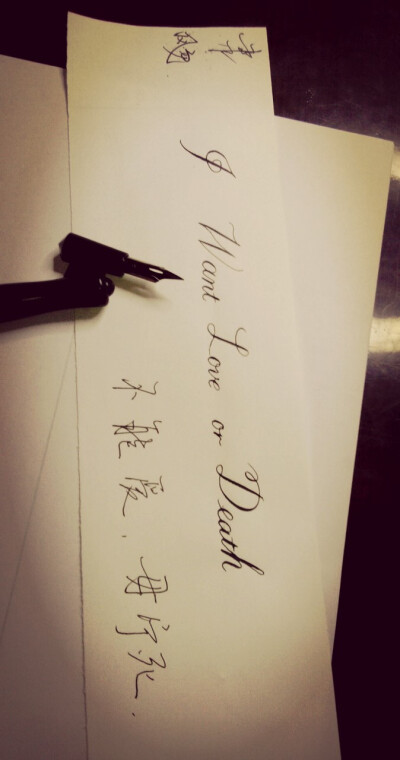 I Want Love or Death
不能爱，毋宁死.